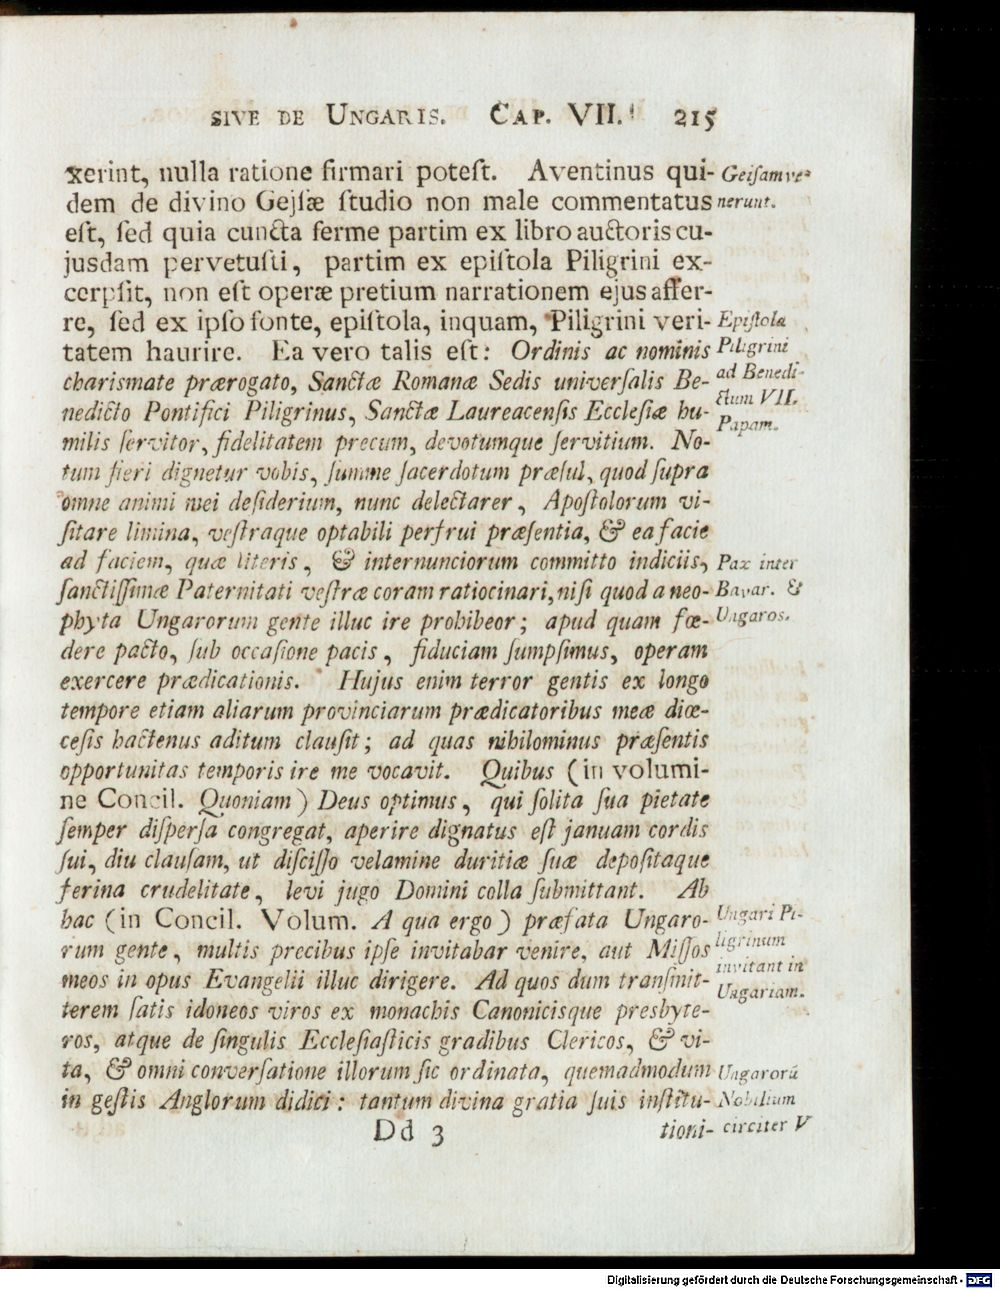 SIVE DE UNGARIS. CAP. VII. 215
xerint, nulla ratione firmari poteſt. Aventinus qui-
dem de divino Gejſæ ſtudio non male commentatus
eſt, ſed quia cuncta ferme partim ex libro auctoris cu-
jusdam pervetuſti, partim ex epiſtola Piligrini ex-
cerpſit, non eſt operæ pretium narrationem ejus affer-
re, ſed ex ipſo fonte, epiſtola, inquam, Piligrini veri-
tatem haurire. Ea vero talis eſt: Ordinis ac nominis
chariſmate prærogato, Sanctæ Romanæ Sedis univerſalis Be-
nedicto Pontifici Piligrinus, Sanctæ Laureacenſis Eccleſiæ hu-
milis ſervitor, fidelitatem precum, devotumque ſervitium. No-
tum fieri dignetur vobis, ſumme ſacerdotum præſul, quod ſupra
omne animi mei deſiderium, nunc delectarer, Apoſtolorum vi-
ſitare limina, veſtraque optabili perfrui præſentia, & ea facie
ad faciem, quæ literis, & internunciorum committo indiciis,
ſanctiſſimæ Paternitati veſtræ coram ratiocinari, niſi quod a neo-
phyta Ungarorum gente illuc ire prohibeor; apud quam fœ-
dere pacto, ſub occaſione pacis, fiduciam ſumpſimus, operam
exercere prædicationis. Hujus enim terror gentis ex longo
tempore etiam aliarum provinciarum prædicatoribus meæ diœ-
ceſis hactenus aditum clauſit; ad quas nihilominus præſentis
opportunitas temporis ire me vocavit. Quibus (in volumi-
ne Concil. Quoniam) Deus optimus, qui ſolita ſua pietate
ſemper diſperſa congregat, aperire dignatus eſt januam cordis
ſui, diu clauſam, ut diſciſſo velamine duritiæ ſuæ depoſitaque
ferina crudelitate, levi jugo Domini colla ſubmittant. Ab
hac (in Concil. Volum. A qua ergo) præfata Ungaro-
rum gente, multis precibus ipſe invitabar venire, aut Miſſos
meos in opus Evangelii illuc dirigere. Ad quos dum tranſmit-
terem ſatis idoneos viros ex monachis Canonicisque presbyte-
ros, atque de ſingulis Eccleſiaſticis gradibus Clericos, & vi-
ta, & omni converſatione illorum ſic ordinata, quemadmodum
in geſtis Anglorum didici: tantum divina gratia ſuis inſtitu-
Dd 3 tioni-
Geiſam ve-
nerunt.
Epiſtola
Piligrini
ad Benedi-
ctum VII.
Papam.
Pax inter
Bavar. &
Ungaros.
Ungari Pi-
ligrinum
invitant in
Ungariam.
Ungarorū
Nobilium
circiter V
Digitalisierung gefördert durch die Deutsche Forschungsgemeinschaft - DFG